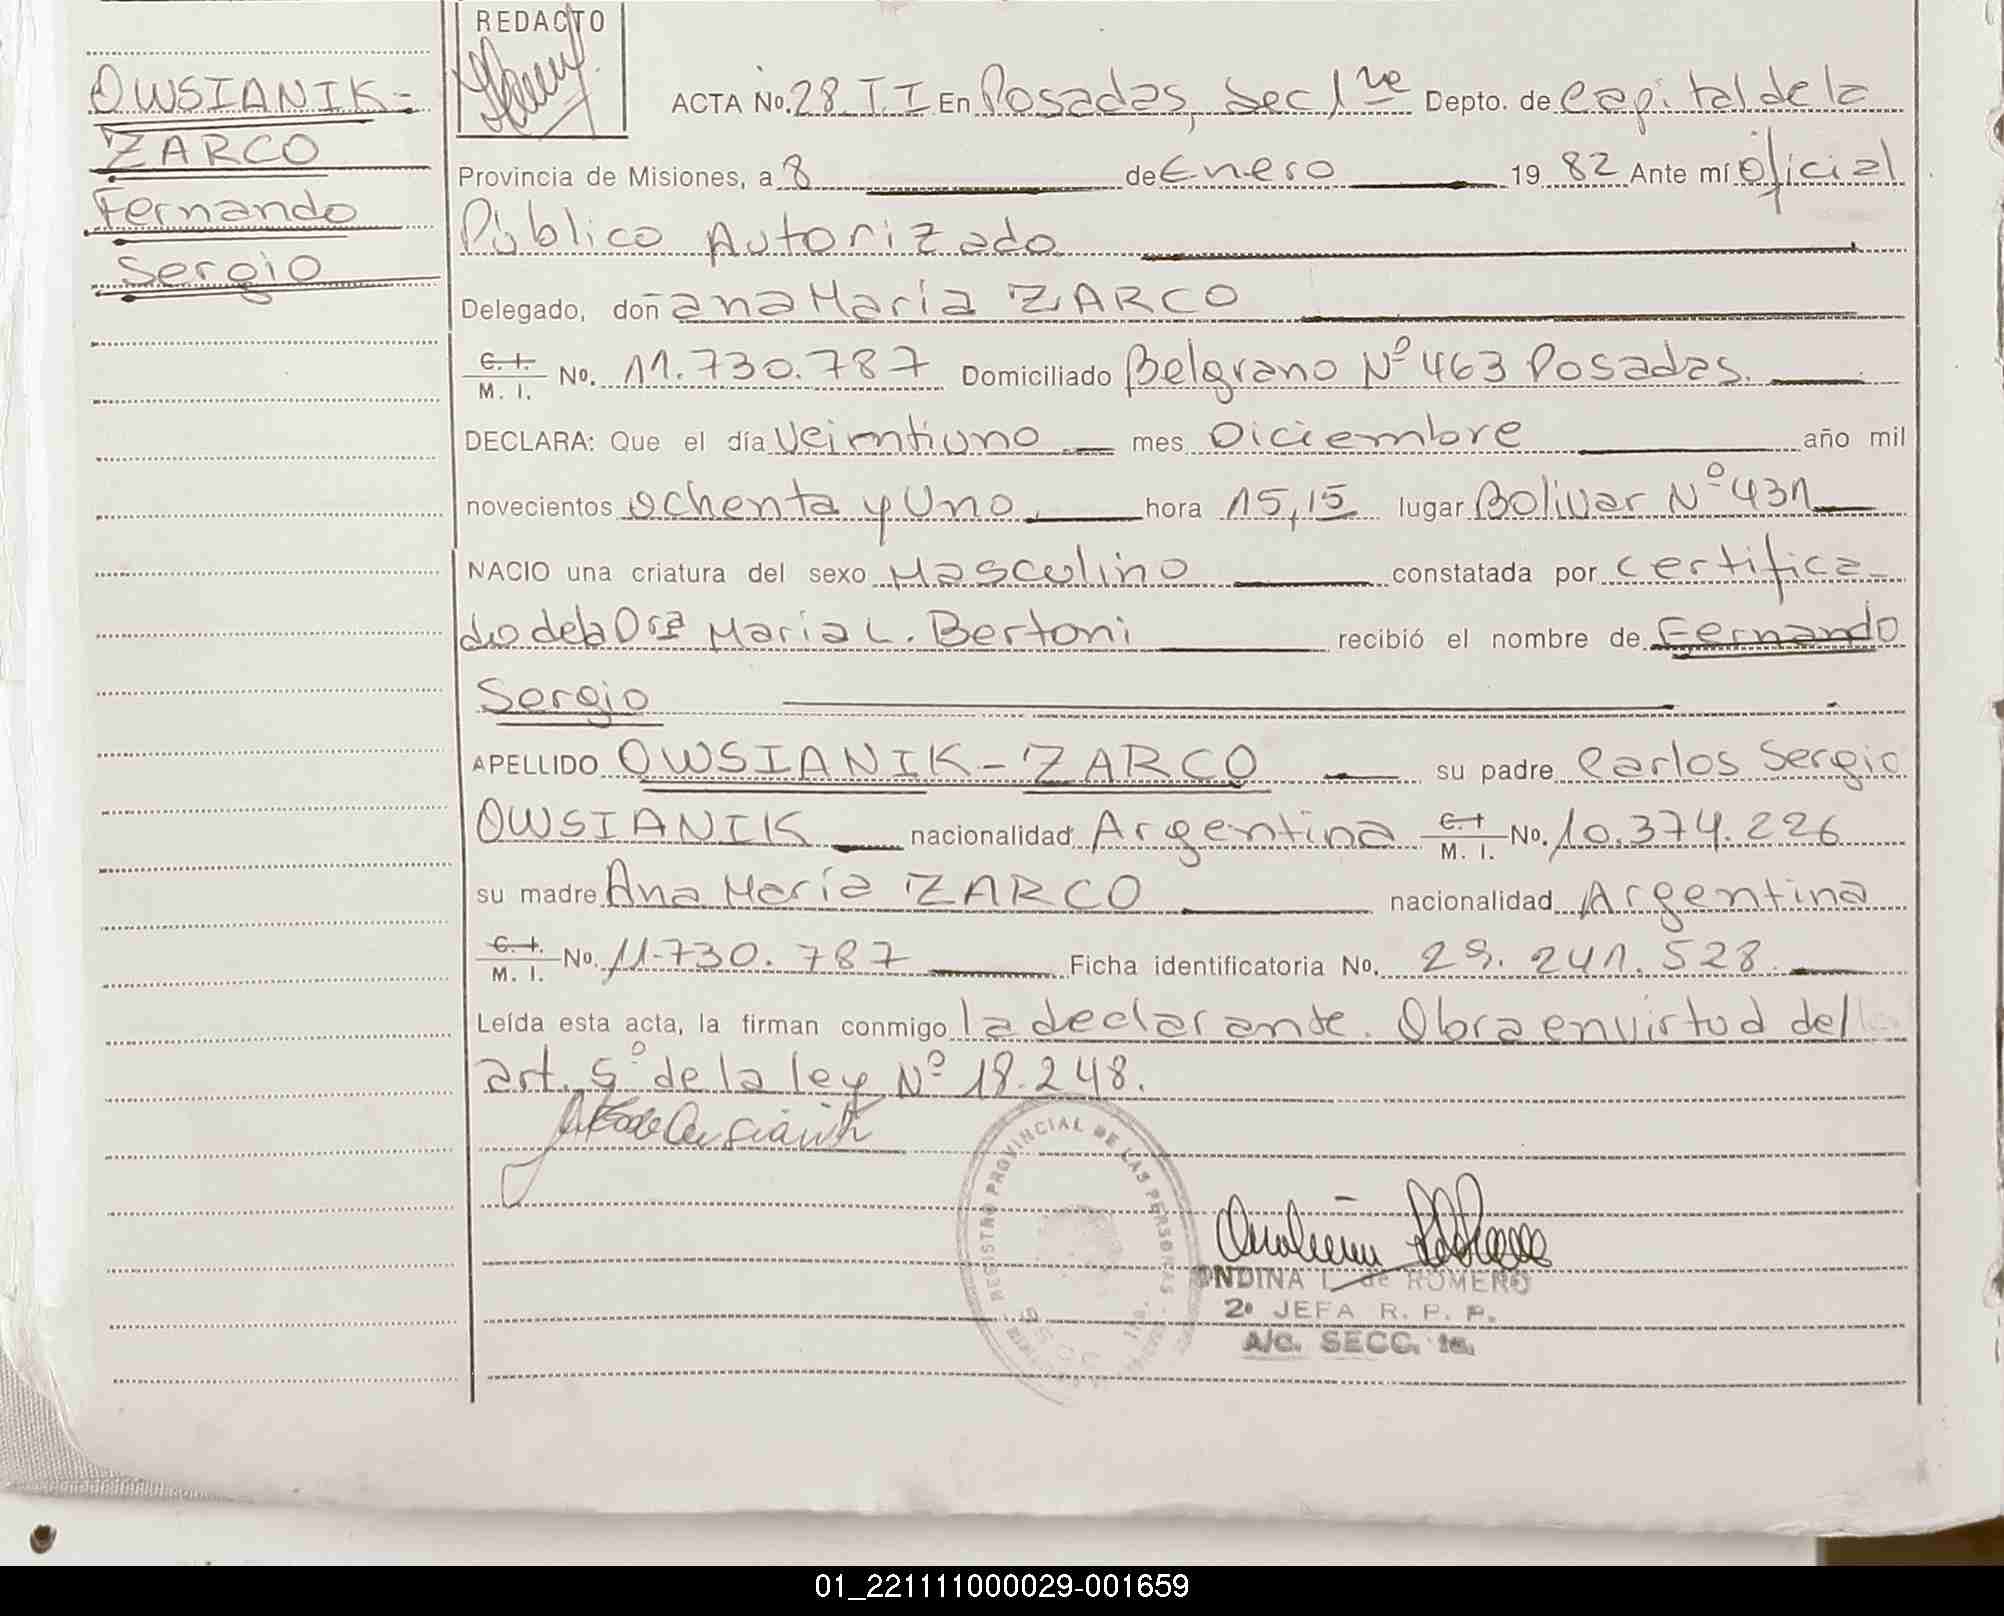 REDACTO
OWSIANIK-
ZARCO
Fernando
Sergio
ACTA No. 28 II En Posadas, Sec 1ra Depto. de Capital de la
Provincia de Misiones, a 8 de Enero 1982 Ante mí Oficial
Público Autorizado
Delegado, doñ ana María ZARCO
C. I. M. I. No. 11.730.787 Domiciliado Belgrano Nº 463 Posadas.
DECLARA: Que el día Veimtiuno mes Diciembre año mil
novecientos ochenta y Uno. hora 15,15 lugar Bolivar Nº 431
NACIO una criatura del sexo Masculino constatada por certifica-
do de la Dra María L. Bertoni recibió el nombre de Fernando
Sergio
APELLIDO OWSIANIK-ZARCO su padre Carlos Sergio
OWSIANIK nacionalidad Argentina C. I. M. I. No. 10.374.226
su madre Ana María ZARCO nacionalidad Argentina
C. I. M. I. No. 11.730.787 Ficha identificatoria No. 29.241.528
Leída esta acta, la firman conmigo la declarante. Obra en virtud del
art. 5º de la ley Nº 18.248.
REGISTRO PROVINCIAL DE LAS PERSONAS
ONDINA L. de ROMERO
2º JEFA R. P. P.
A/C. SECC. 1a.
01_221111000029-001659